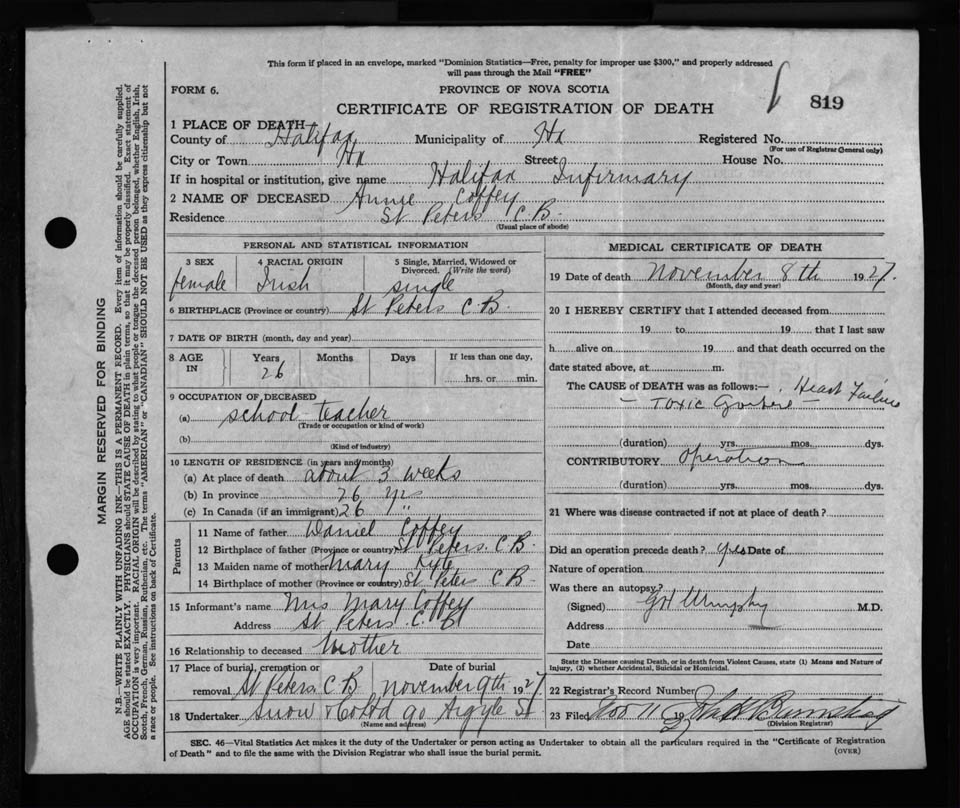 This form if placed in an envelope, marked "Dominion Statistics—Free, penalty for improper use $300," and properly addressed
will pass through the Mail "FREE"
FORM 6.
PROVINCE OF NOVA SCOTIA
819
CERTIFICATE OF REGISTRATION OF DEATH
1 PLACE OF DEATH
County of Halifax Municipality of Hx Registered No.
(For use of Registrar General only)
City or Town Hx Street House No.
If in hospital or institution, give name Halifax Infirmary
2 NAME OF DECEASED Annie Coffey
Residence St Peters C.B.
(Usual place of abode)
PERSONAL AND STATISTICAL INFORMATION
3 SEX 4 RACIAL ORIGIN 5 Single, Married, Widowed or
Divorced. (Write the word)
female Irish single
6 BIRTHPLACE (Province or country) St Peters C B.
7 DATE OF BIRTH (month, day and year)
8 AGE IN Years Months Days If less than one day,
26 hrs. or min.
9 OCCUPATION OF DECEASED
(a) school teacher
(Trade or occupation or kind of work)
(b)
(Kind of industry)
10 LENGTH OF RESIDENCE (in years and months)
(a) At place of death about 3 weeks
(b) In province 26 yrs
(c) In Canada (if an immigrant) 26 "
Parents
11 Name of father Daniel Coffey
12 Birthplace of father (Province or country) St Peters. C.B.
13 Maiden name of mother Mary Kyte
14 Birthplace of mother (Province or country) St Peters C B.
15 Informant's name Mrs Mary Coffey
Address St Peters C. B
16 Relationship to deceased Mother
17 Place of burial, cremation or Date of burial
removal St Peters C B November 9th 1927
18 Undertaker Snow & Co Ltd 90 Argyle St
(Name and address)
MEDICAL CERTIFICATE OF DEATH
19 Date of death November 8th 1927.
(Month, day and year)
20 I HEREBY CERTIFY that I attended deceased from
19 to 19 that I last saw
h alive on 19 and that death occurred on the
date stated above, at m.
The CAUSE of DEATH was as follows:— Heart Failure
- Toxic Goitre -
(duration) yrs. mos. dys.
CONTRIBUTORY Operation
(duration) yrs. mos. dys.
21 Where was disease contracted if not at place of death?
Did an operation precede death? yes Date of
Nature of operation
Was there an autopsy?
(Signed) G H Murphy M.D.
Address
Date
State the Disease causing Death, or in death from Violent Causes, state (1) Means and Nature of
Injury, (2) whether Accidental, Suicidal or Homicidal.
22 Registrar's Record Number
23 Filed Nov 11
(Division Registrar)
SEC. 46—Vital Statistics Act makes it the duty of the Undertaker or person acting as Undertaker to obtain all the particulars required in the "Certificate of Registration
of Death" and to file the same with the Division Registrar who shall issue the burial permit.
(OVER)
MARGIN RESERVED FOR BINDING
N.B.—WRITE PLAINLY WITH UNFADING INK—THIS IS A PERMANENT RECORD. Every item of information should be carefully supplied.
AGE should be stated EXACTLY. PHYSICIANS should STATE CAUSE OF DEATH in plain terms, so that it may be properly classified. Exact statement of
OCCUPATION is very important. RACIAL ORIGIN will be described by stating to what people or tongue the deceased person belonged, whether English, Irish,
Scotch, French, German, Russian, Ruthenian, etc. The terms "AMERICAN" or "CANADIAN" SHOULD NOT BE USED as they express citizenship but not
a race or people. See instructions on back of Certificate.